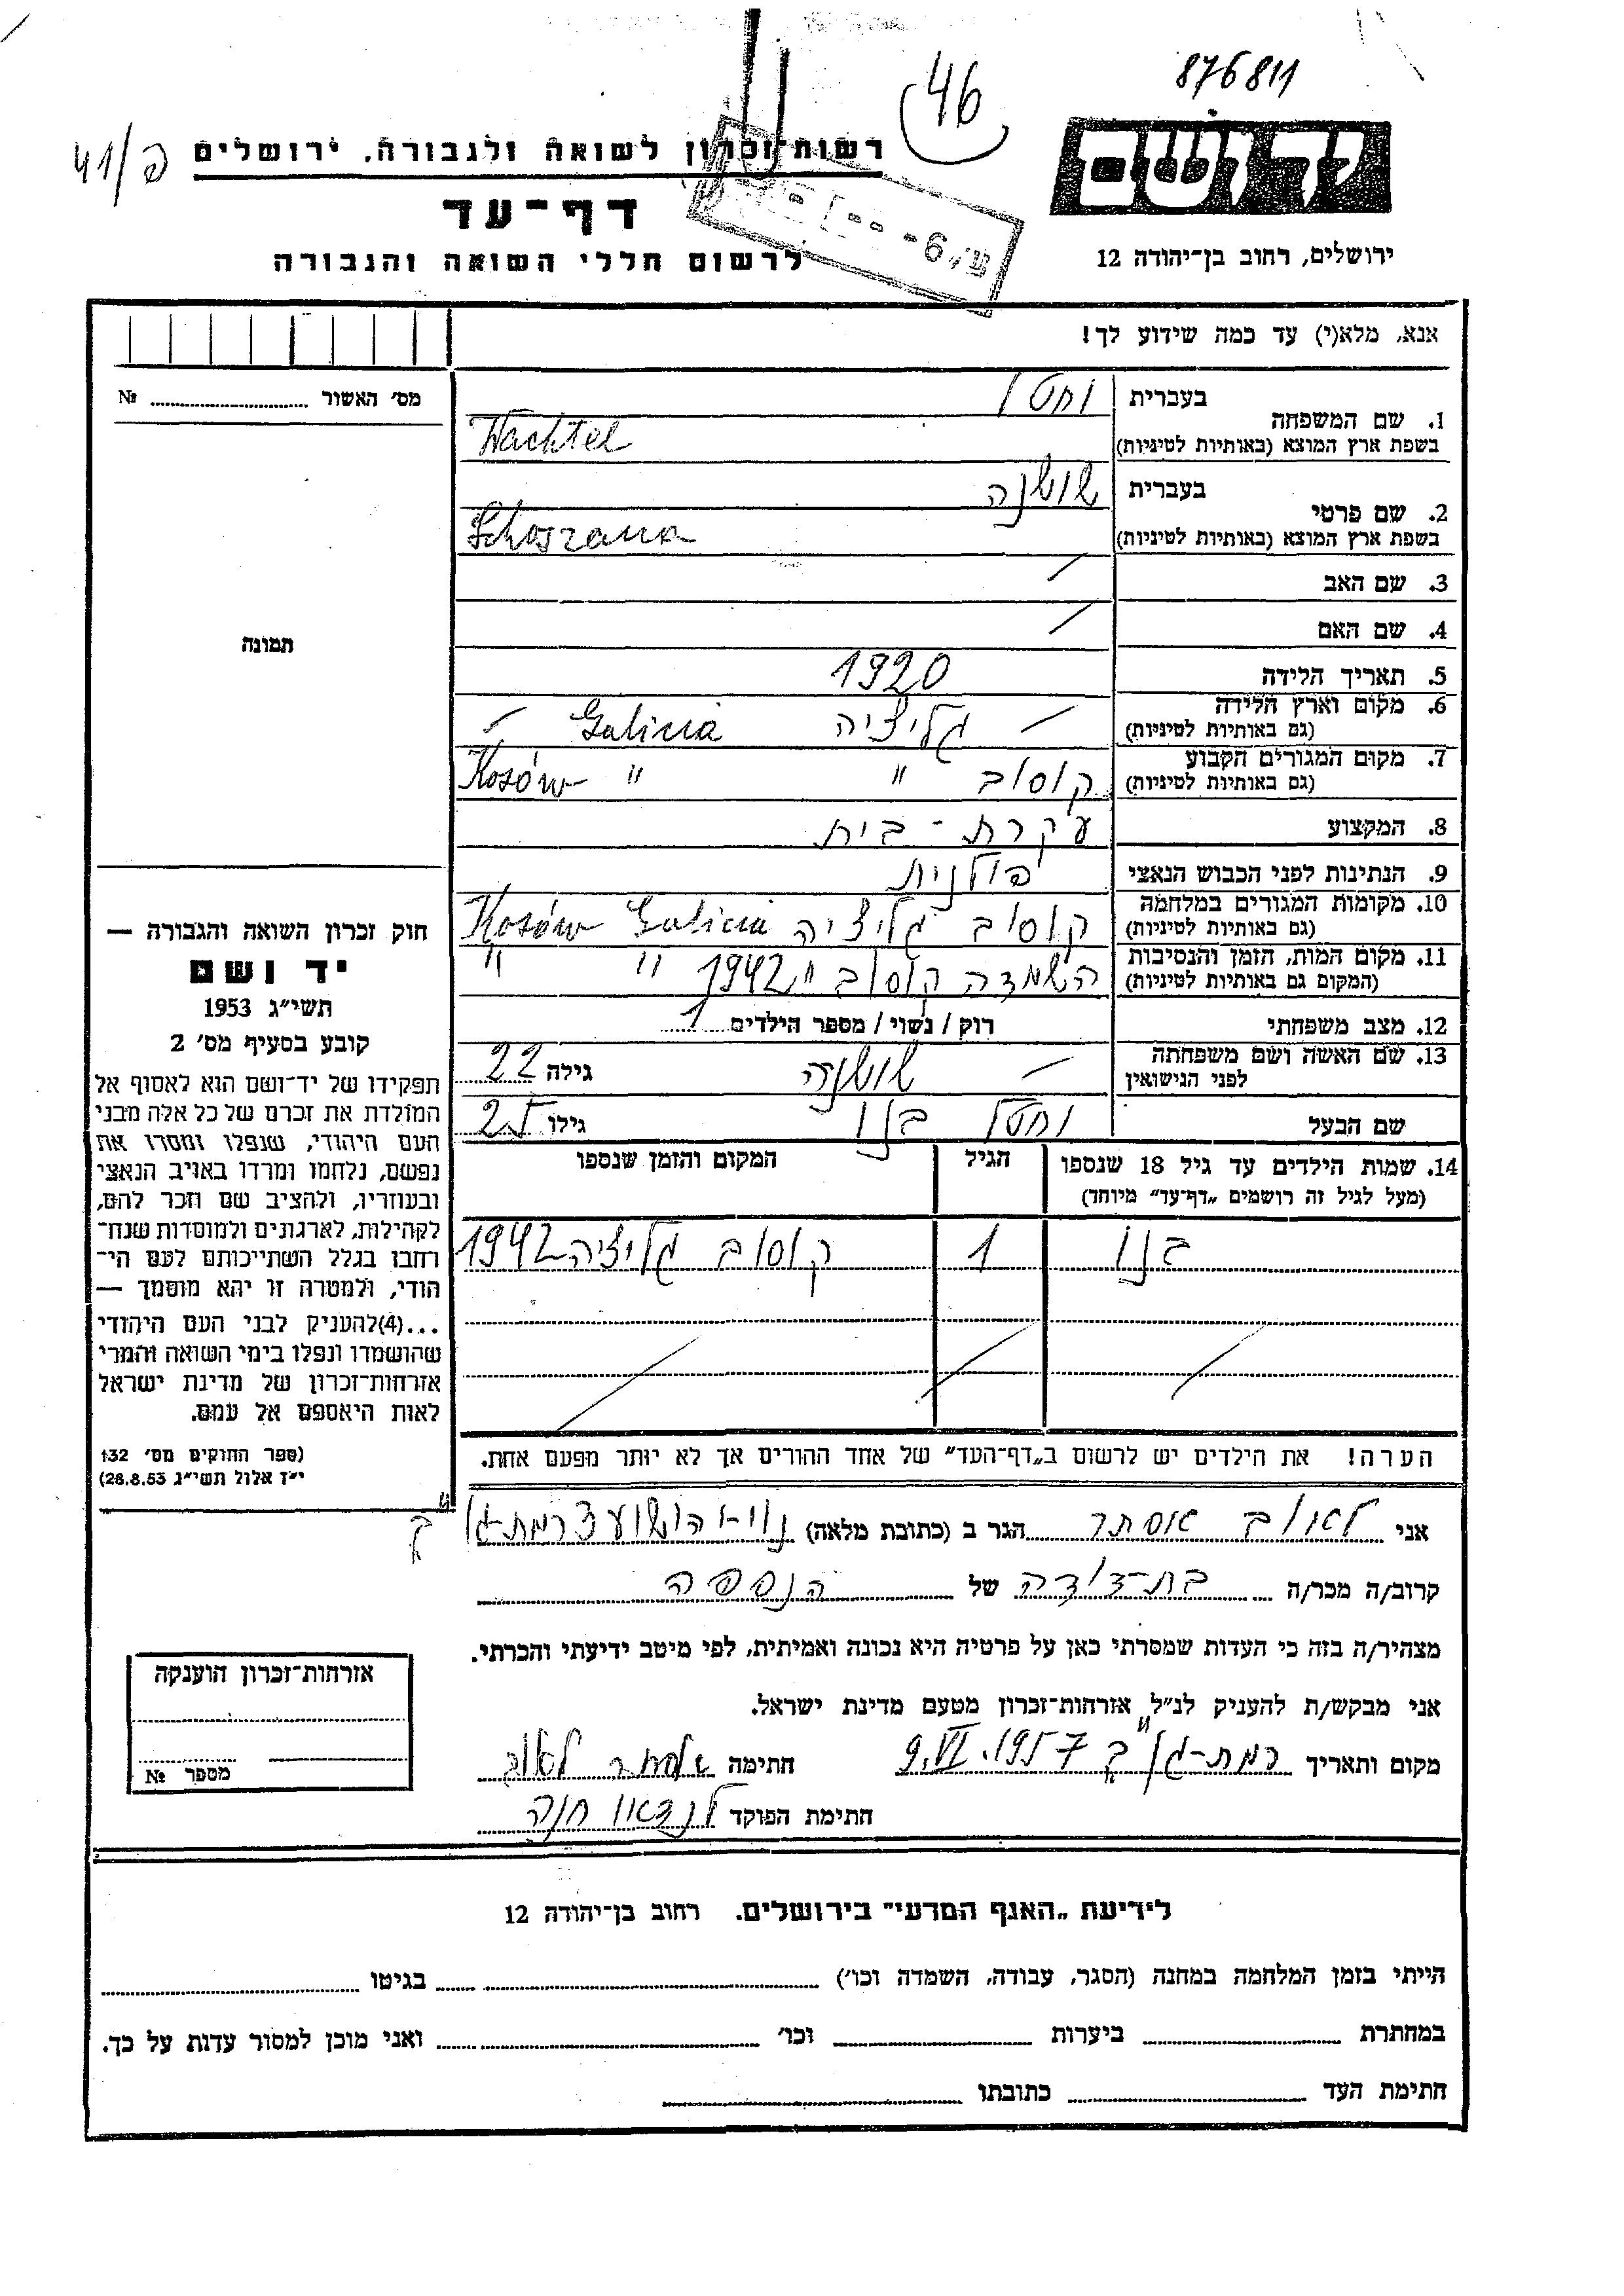 876811
46
פ/41
רשות-זכרון לשואה ולגבורה, ירושלים
דף-עד
לרשום חללי השואה והגבורה
יד ושם
ירושלים, רחוב בן-יהודה 12
אנא, מלא(י) עד כמה שידוע לך!
מס׳ האשור № ........
1. שם המשפחה
בעברית
וחטל
בשפת ארץ המוצא (באותיות לטיניות)
Wachtel
2. שם פרטי
בעברית
שושנה
בשפת ארץ המוצא (באותיות לטיניות)
Schoszana
3. שם האב /
4. שם האם /
5. תאריך הלידה 1920
6. מקום וארץ הלידה
(גם באותיות לטיניות)
— גליציה Galicia —
7. מקום המגורים הקבוע
(גם באותיות לטיניות)
קוסוב " Kosów "
8. המקצוע עקרת-בית
9. הנתינות לפני הכבוש הנאצי פולנית
10. מקומות המגורים במלחמה
(גם באותיות לטיניות)
קוסוב גליציה Kosów Galicia
11. מקום המות, הזמן והנסיבות
(המקום גם באותיות לטיניות)
השמדה קוסוב " 1942 " "
12. מצב משפחתי רוק / נשוי / מספר הילדים 1
13. שם האשה ושם משפחתה
לפני הנישואין
— שושנה גילה 22
שם הבעל וחטל בנו גילו 25
14. שמות הילדים עד גיל 18 שנספו
(מעל לגיל זה רושמים „דף-עד" מיוחד)
הגיל
המקום והזמן שנספו
בנו 1 קוסוב גליציה 1942
הערה! את הילדים יש לרשום ב„דף-העד" של אחד ההורים אך לא יותר מפעם אחת.
תמונה
חוק זכרון השואה והגבורה —
יד ושם
תשי״ג 1953
קובע בסעיף מס׳ 2
תפקידו של יד-ושם הוא לאסוף אל
המולדת את זכרם של כל אלה מבני
העם היהודי, שנפלו ומסרו את
נפשם, נלחמו ומרדו באויב הנאצי
ובעוזריו, ולהציב שם וזכר להם,
לקהילות, לארגונים ולמוסדות שנח-
רחבו בגלל השתייכותם לעם הי-
הודי, ולמטרה זו יהא מוסמך —
...(4)להעניק לבני העם היהודי
שהושמדו ונפלו בימי השואה והמרי
אזרחות-זכרון של מדינת ישראל
לאות היאספם אל עמם.
(ספר החוקים מס׳ 132
י״ז אלול תשי״ג 28.8.53)
אני לאוב אסתר הגר ב (כתובת מלאה) נוי-הושע רמת-גן
קרוב/ה מכר/ה בת-דודה של הנספה
מצהיר/ה בזה כי העדות שמסרתי כאן על פרטיה היא נכונה ואמיתית, לפי מיטב ידיעתי והכרתי.
אני מבקש/ת להעניק לנ״ל אזרחות-זכרון מטעם מדינת ישראל.
מקום ותאריך רמת-גן 9.VI.1957 חתימה אסתר לאוב
חתימת הפוקד לנדאו חנה
אזרחות-זכרון הוענקה
מספר №
לידיעת „האגף המדעי" בירושלים. רחוב בן-יהודה 12
הייתי בזמן המלחמה במחנה (הסגר, עבודה, השמדה וכו׳) ........ בגיטו ........
במחתרת ........ ביערות ........ וכו׳ ........ ואני מוכן למסור עדות על כך.
חתימת העד ........ כתובתו ........